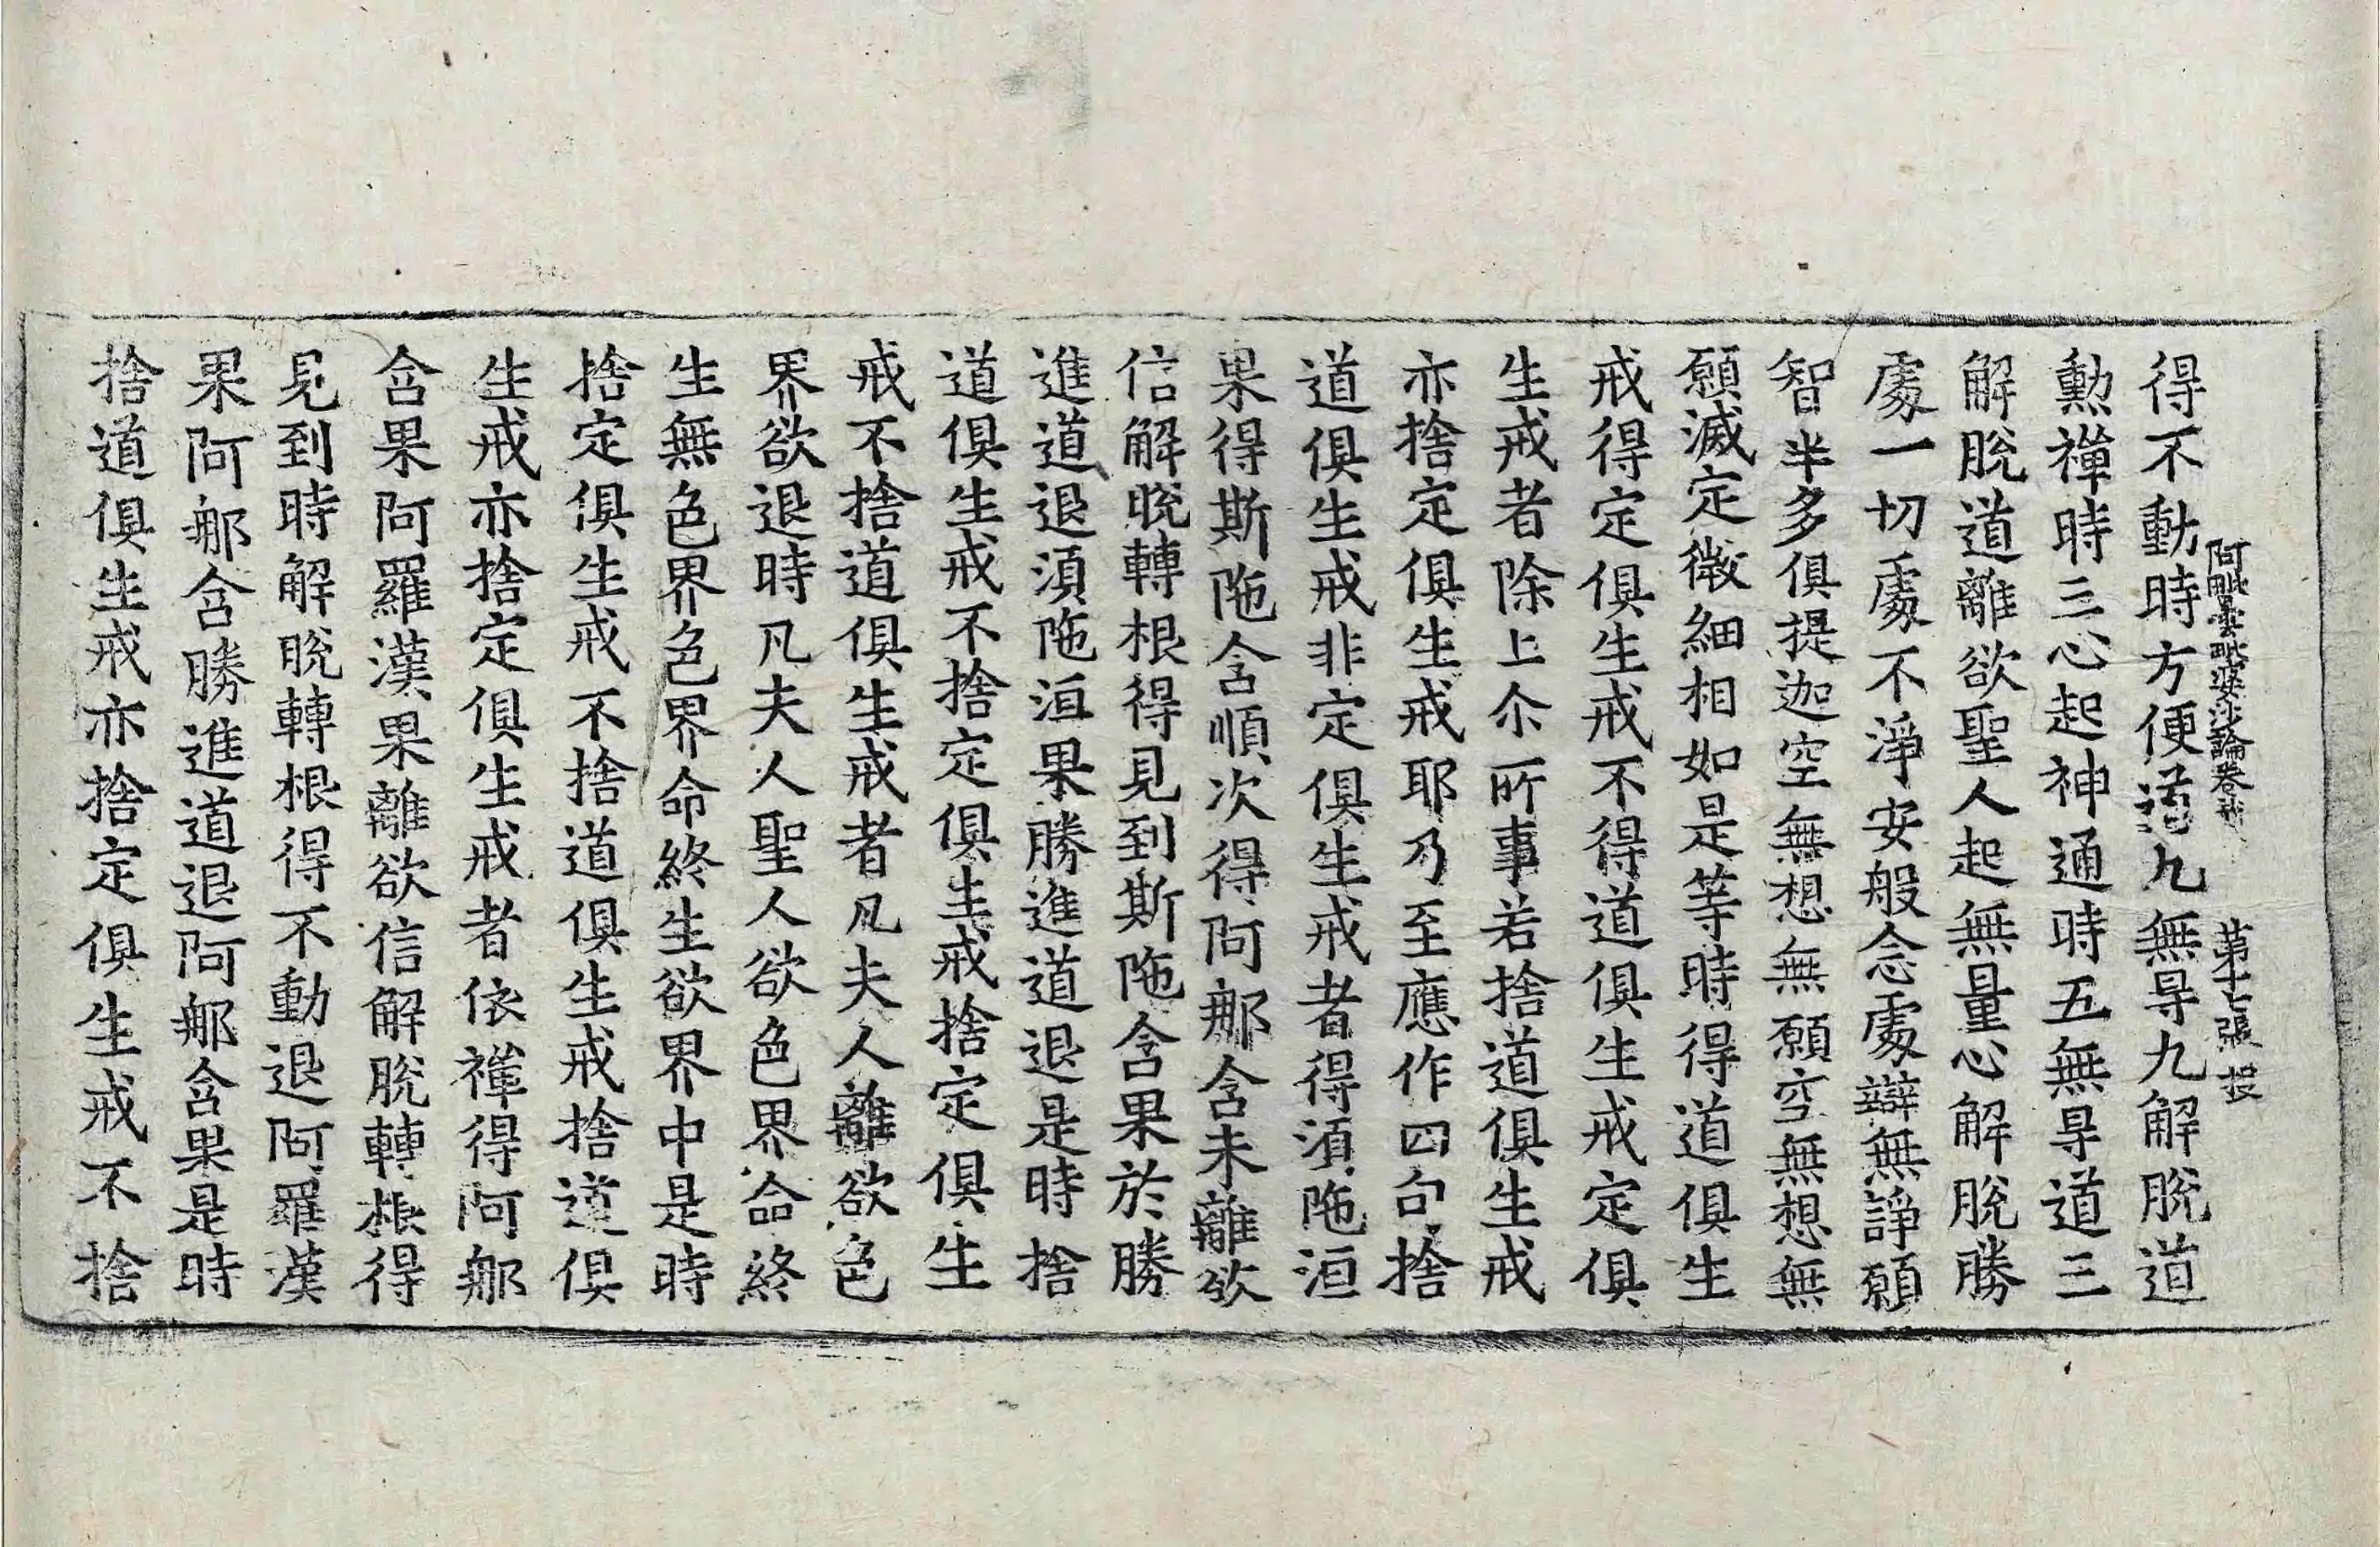 阿毗曇毗婆沙論卷 第十七張 投
得不動時方便道九無㝵九解脫道
勲禪時三心起神通時五無㝵道三
解脫道離欲聖人起無量心解脫勝
處一切處不淨安般念處辯無諍願
智半多俱提迦空無想無願空無想無
願滅定微細相如是等時得道俱生
戒得定俱生戒不得道俱生戒定俱
生戒者除上尒所事若捨道俱生戒
亦捨定俱生戒耶乃至應作四句捨
道俱生戒非定俱生戒者得湏陁洹
果得斯陁含順次得阿那含未離欲
信解脫轉根得見到斯陁含果於勝
進道退湏陁洹果勝進道退是時捨
道俱生戒不捨定俱生戒捨定俱生
戒不捨道俱生戒者凡夫人離欲色
界欲退時凡夫人聖人欲色界命終
生無色界色界命終生欲界中是時
捨定俱生戒不捨道俱生戒捨道俱
生戒亦捨定俱生戒者依禪得阿那
含果阿羅漢果離欲信解脫轉根得
見到時解脫轉根得不動退阿羅漢
果阿那含勝進道退阿那含果是時
捨道俱生戒亦捨定俱生戒不捨